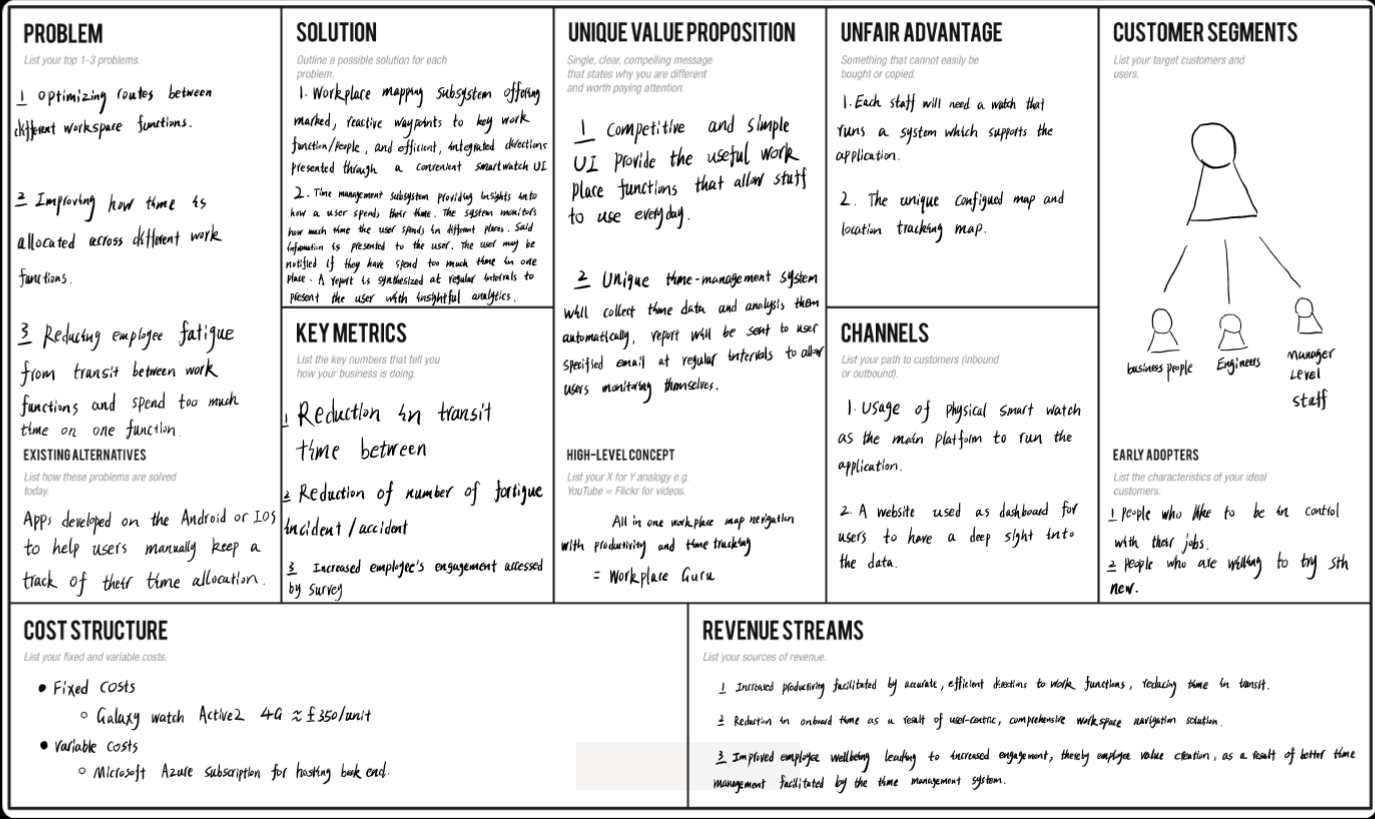 PROBLEM
List your top 1-3 problems.
1 optimizing routes between
different workspace functions.
2 Improving how time is
allocated across different work
functions.
3 Reducing employee fatigue
from transit between work
functions and spend too much
time on one function.
EXISTING ALTERNATIVES
List how these problems are solved
today.
Apps developed on the Android or IOS
to help users manually keep a
track of their time allocation.
SOLUTION
Outline a possible solution for each
problem.
1. Workplace mapping subsystem offering
marked, reactive waypoints to key work
function/people, and efficient, integrated directions
presented through a convenient smartwatch UI
2. Time management subsystem providing insights into
how a user spends their time. The system monitors
how much time the user spends in different places. Said
infomation is presented to the user. The user may be
notified if they have spend too much time in one
place. A report is synthesized at regular intervals to
present the user with insightful analytics.
KEY METRICS
List the key numbers that tell you
how your business is doing.
1 Reduction in transit
time between
2 Reduction of number of fortigue
incident / accident
3 Increased employee's engagement accessed
by survey
UNIQUE VALUE PROPOSITION
Single, clear, compelling message
that states why you are different
and worth paying attention.
1 Competitive and simple
UI provide the useful work
place functions that allow stuff
to use everyday.
2 Unique time-management system
will collect time data and analysis them
automatically, report will be sent to user
specified email at regular intervals to allow
users monitoring themselves.
HIGH-LEVEL CONCEPT
List your X for Y analogy e.g.
YouTube = Flickr for videos.
All in one workplace map nevigation
with productivity and time tracking
= Workplace Guru
UNFAIR ADVANTAGE
Something that cannot easily be
bought or copied.
1. Each staff will need a watch that
runs a system which supports the
application.
2. The unique configued map and
location tracking map.
CHANNELS
List your path to customers (inbound
or outbound).
1. Usage of physical smart watch
as the main platform to run the
application.
2 A website used as dashboard for
users to have a deep sight into
the data.
CUSTOMER SEGMENTS
List your target customers and
users.
business people
Engineers
manager
Level
staff
EARLY ADOPTERS
List the characteristics of your ideal
customers.
1 people who like to be in control
with their jobs.
2 people who are willing to try sth
new.
COST STRUCTURE
List your fixed and variable costs.
• Fixed costs
○ Galaxy watch Active2 4G ≈ £350/unit
• Variable costs
○ Microsoft Azure subscription for hosting back end.
REVENUE STREAMS
List your sources of revenue.
1 Increased productiviy facilitated by accurate, efficient directions to work functions, reducing time in transit.
2 Reduction in onboard time as a result of user-centric, comprehensive workspace navigation solution.
3 Improved employee wellbeing leading to increased engagement, thereby employee value creation, as a result of better time
management facilitated by the time management system.